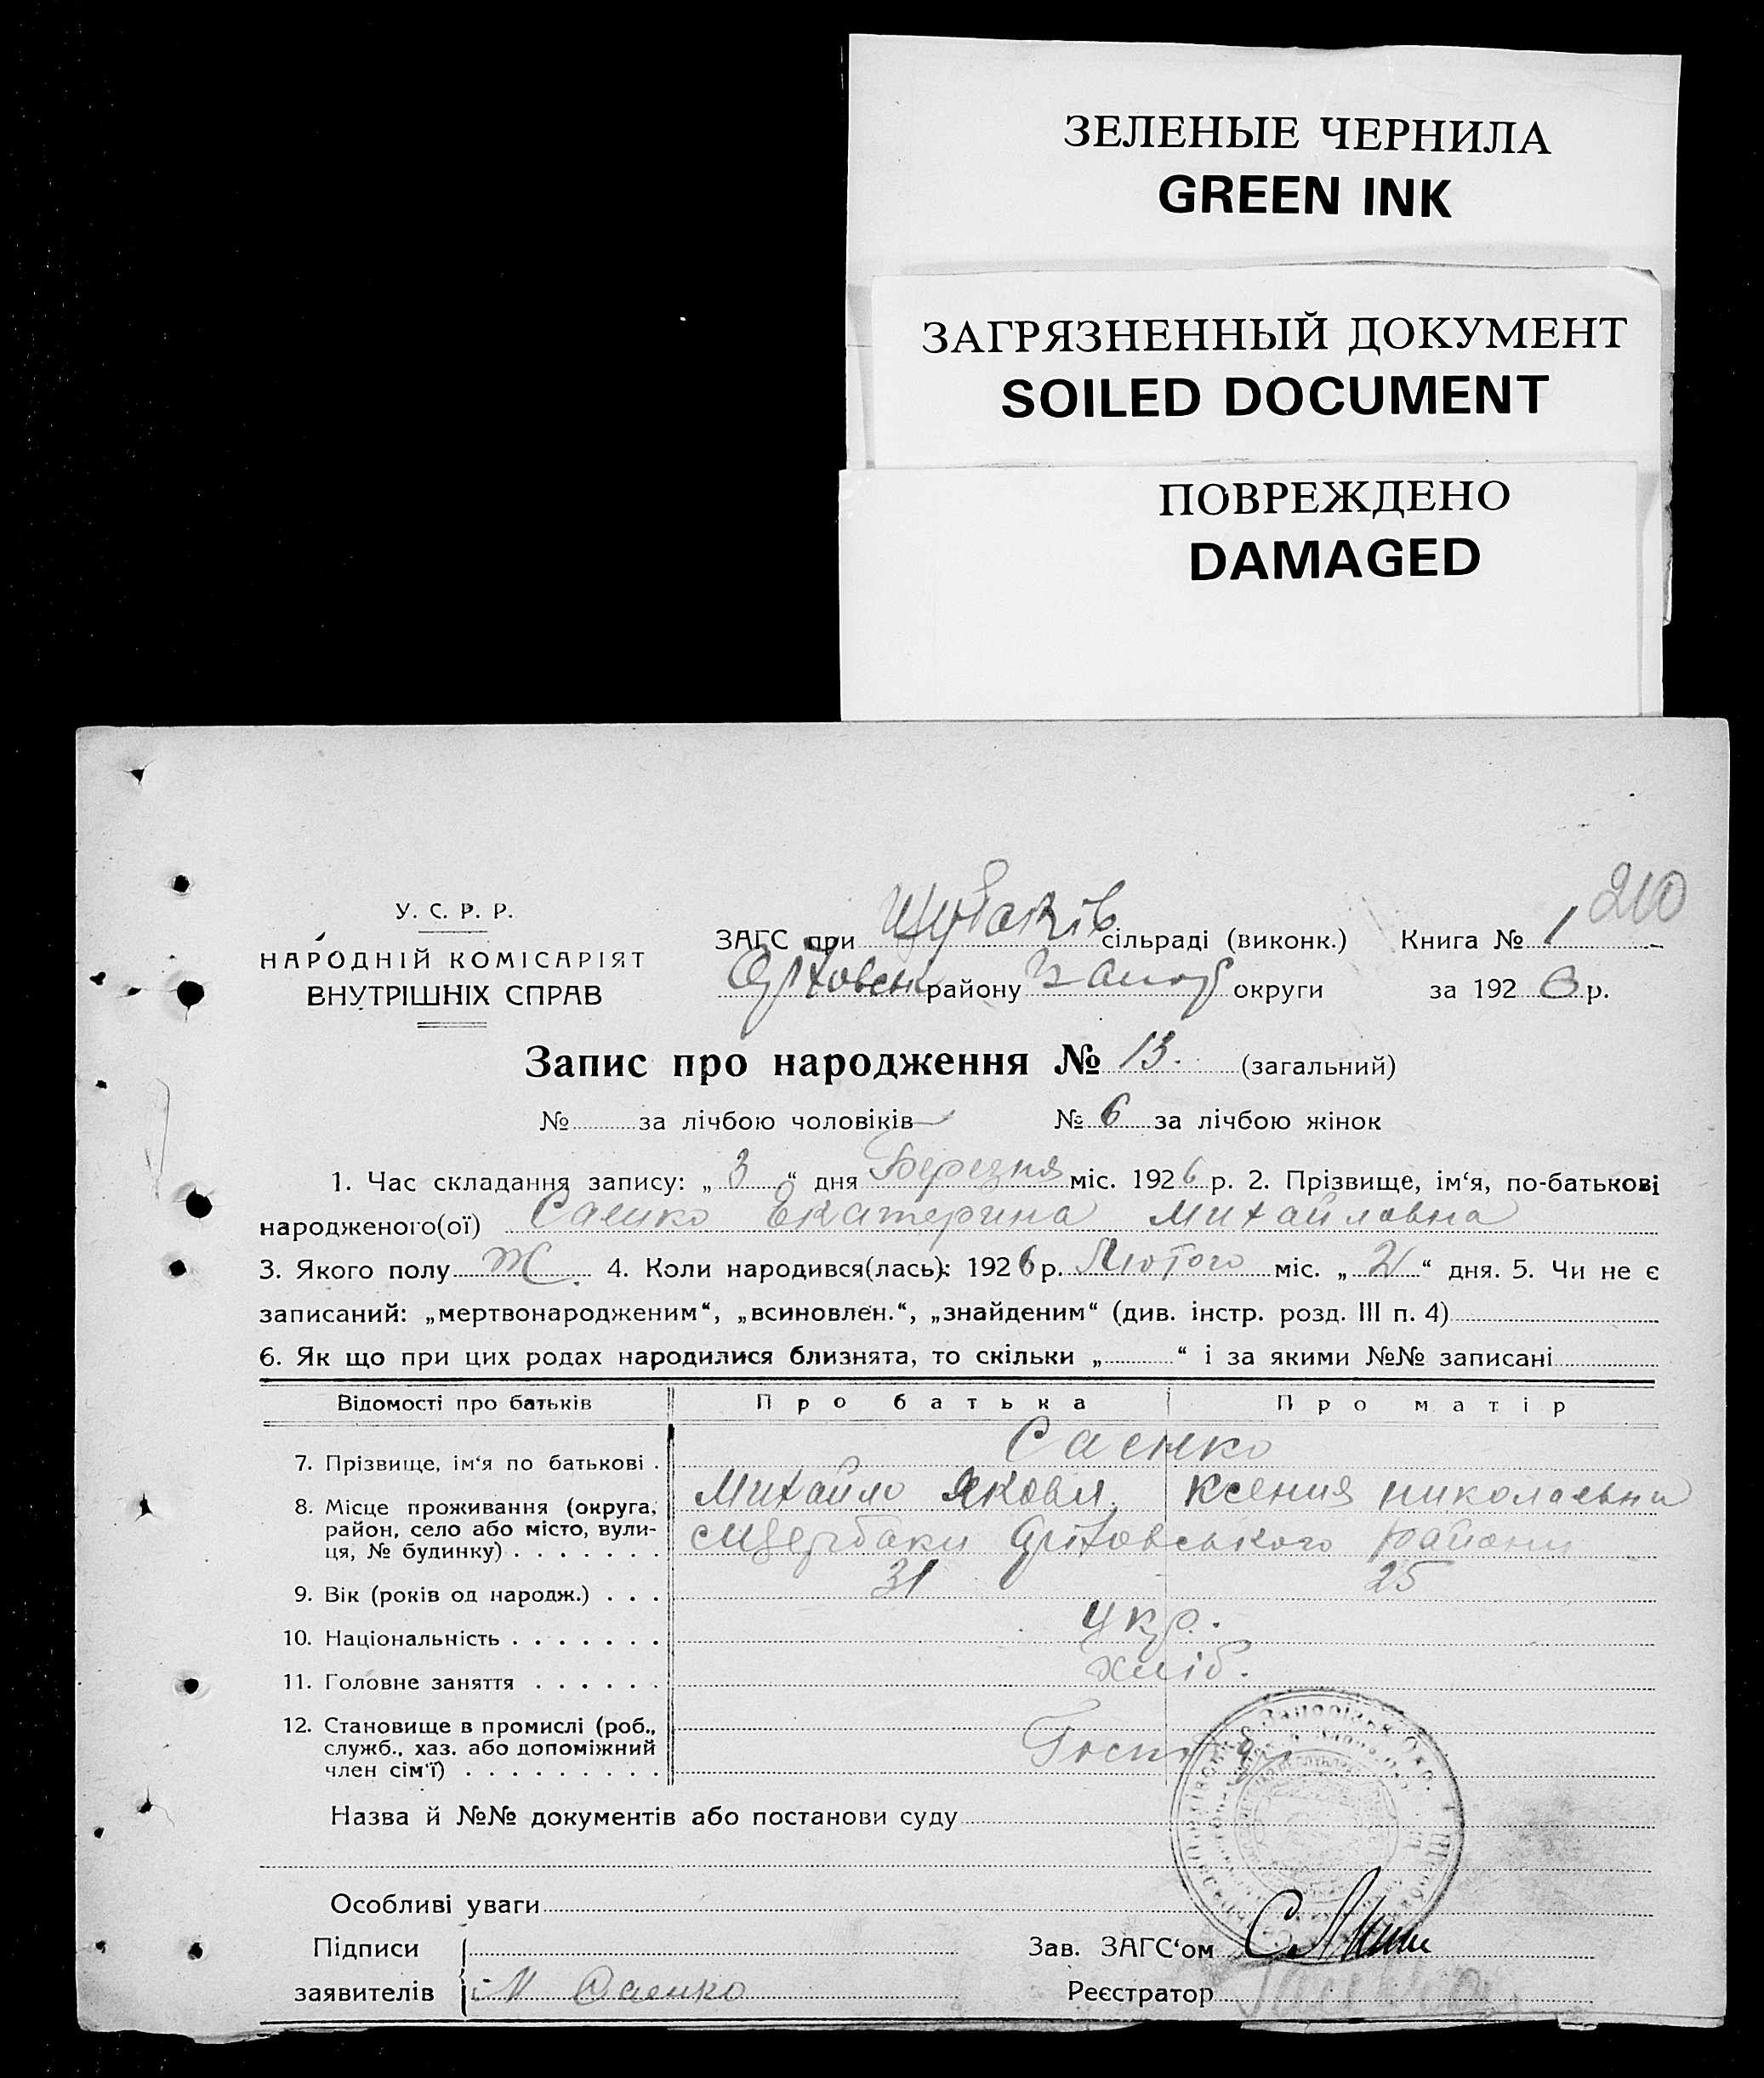 ЗЕЛЕНЫЕ ЧЕРНИЛА
GREEN INK
ЗАГРЯЗНЕННЫЙ ДОКУМЕНТ
SOILED DOCUMENT
ПОВРЕЖДЕНО
DAMAGED
210
У. С. Р. Р.
НАРОДНІЙ КОМІСАРІЯТ
ВНУТРІШНІХ СПРАВ
ЗАГС при сільраді (виконк.) Книга № 1
району Запор округи за 192 6 р.
Запис про народження № 13. (загальний)
№ за лічбою чоловіків № 6 за лічбою жінок
1. Час складання запису: „ 3 “ дня Березня міс. 1926 р. 2. Прізвище, ім‘я, по-батькові
народженого(ої) Саенко Екатерина Михайловна
3. Якого полу Ж. 4. Коли народився(лась): 1926 р. Лютого міс. „ 21 “ дня. 5. Чи не є
записаний: „мертвонародженим“, „всиновлен.“, „знайденим“ (див. інстр. розд. III п. 4)
6. Як що при цих родах народилися близнята, то скільки „ “ і за якими №№ записані
Відомості про батьків Про батька Про матір
Саенко
7. Прізвище, ім‘я по батькові .
Михайло Яковл. Ксения николаевна
8. Місце проживання (округа,
район, село або місто, вули-
ця, № будинку) . . . . . . .
сЩербаки Оріховського району
9. Вік (років од народж.) . . . 31 25
10. Національність . . . . . . . укр.
11. Головне заняття . . . . . . хліб.
12. Становище в промислі (роб.,
служб., хаз. або допоміжний
член сім‘ї) . . . . . . . . .
Назва й №№ документів або постанови суду
Особливі уваги
Підписи
заявителів М Саенко
Зав. ЗАГС‘ом
Реєстратор